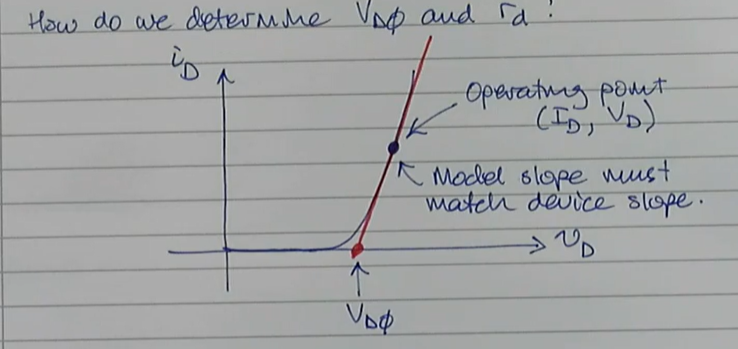 How do we determine VDφ and rd?
iD
Operating point
(ID, VD)
Model slope must
match device slope.
vD
VDφ